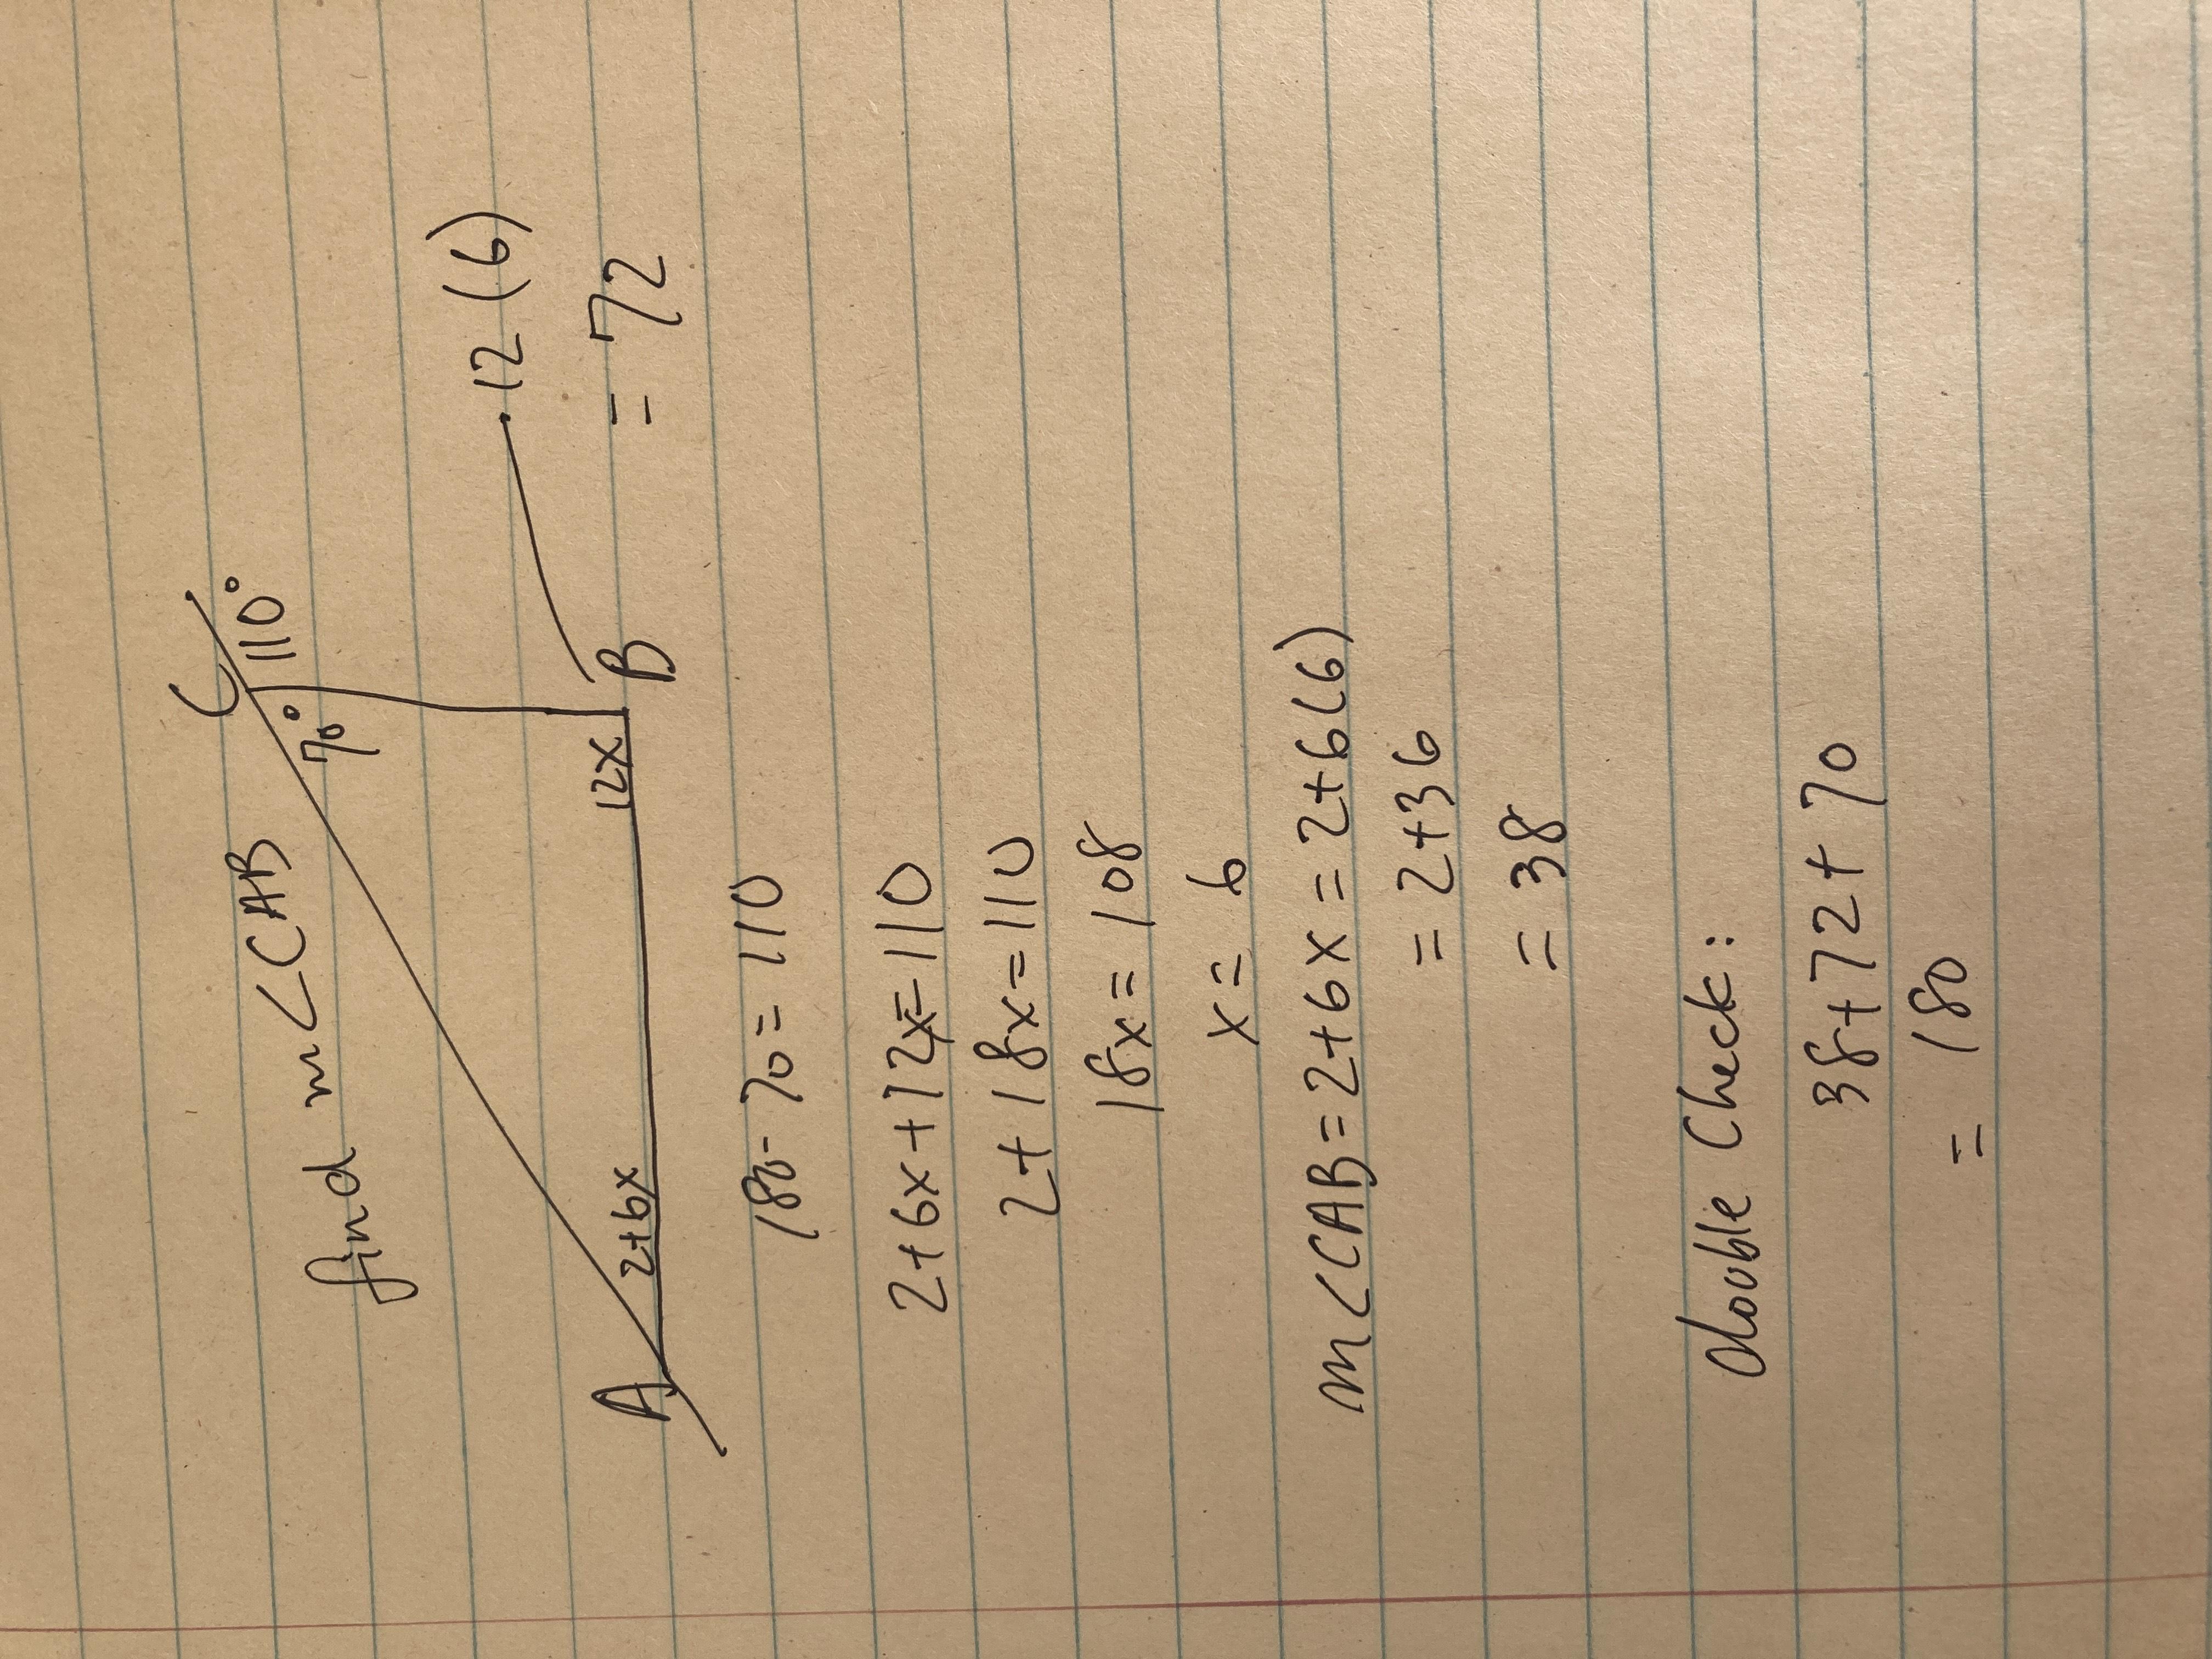 find m<CAB
C
110°
70°
12(6)
= 72
A
2+6x
12x
B
180-70=110
2+6x+12x=110
2+18x=110
18x=108
x=6
m<CAB=2+6x=2+6(6)
=2+36
=38
double check:
38+72+70
=180